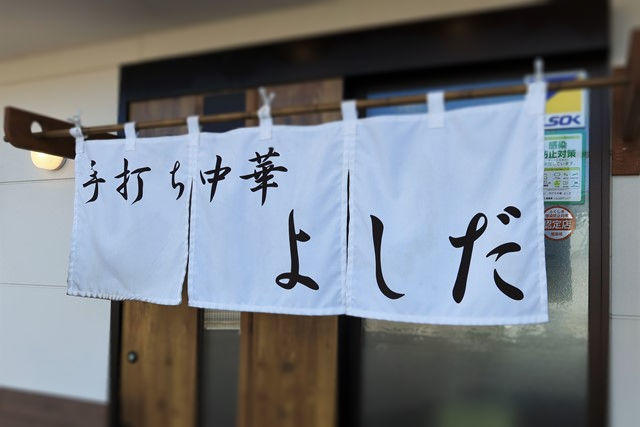 手打ち中華
よしだ
SOK
感染
防止対策
認定店